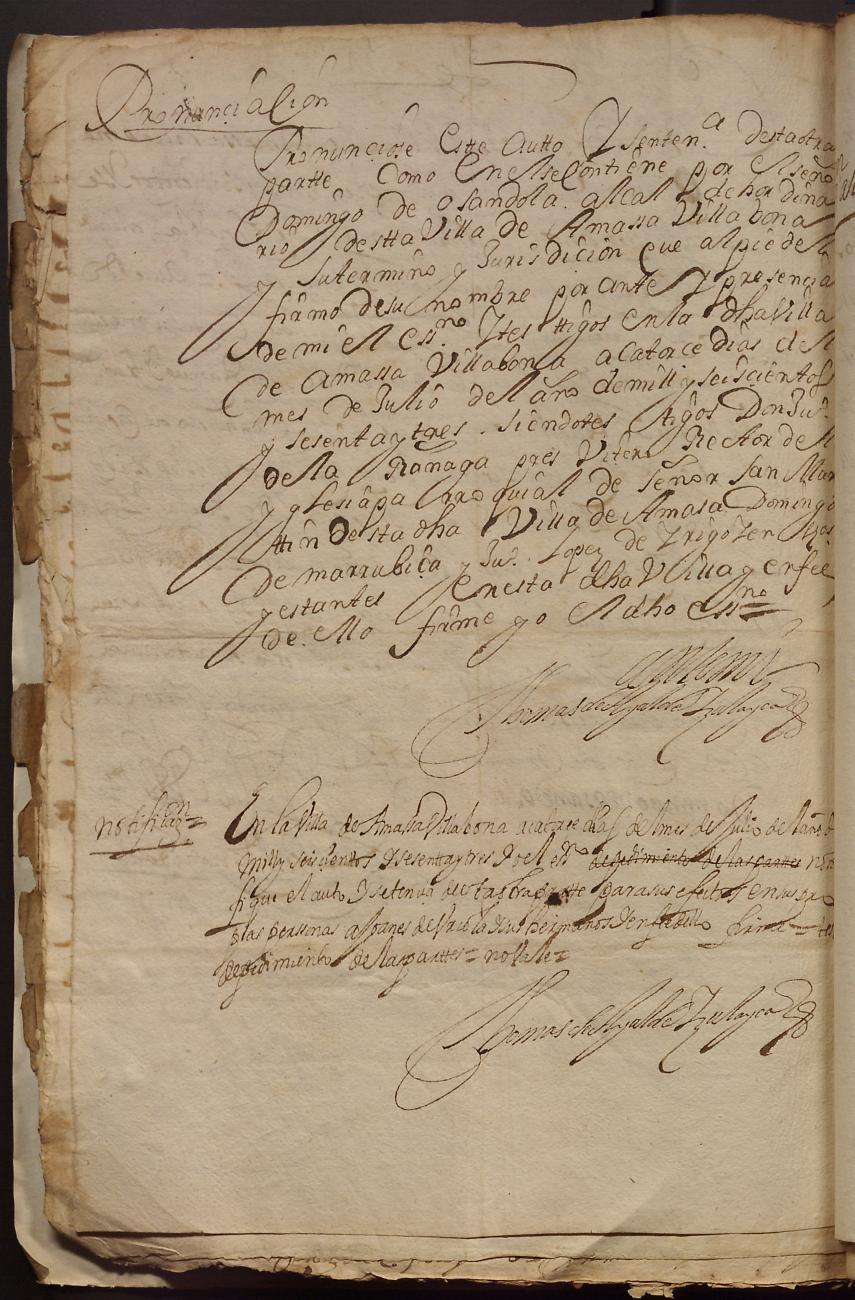 Pronunciacion
Pronunciose Este Autto Y senten.ª destaotra
partte Como Enelsecontiene por Elseñor
Domingo de osandola. alcalde hordina
rio destta Villa de Amassa Villabona
y su termino y Jurisdicion que alpiedella
firmo desu nombre por ante Y presencia
de mi el ess.no Y testtigos en la dha Villa
de Amassa Villabona a Catorce dias del
mes de Julio del año demill y seiscientos
y sesenta y tres. siendotes ttigos Don Ju.º
de la Rañaga presvitero Rector de la
yglesia parroquial de señor san Mar
ttin Desta dha Villa de Amasa Domingo
de marrubiça y Ju.º Lopez de Yrigo
yestantes Enesta dha Villa y enfee
de.ello firme yo El dho ess.no =
antemi
Thomas de Ugalde Zulayca
notificaz.on =
En la Villa de Amassa Villabona acatorce dias delmes de Julio delaño de
mill y seiscientos Y sesentaytres Yo el es.no depedimiento de las partes noti
fique el auto Y setencia de esta otra partte para sus efectos ensus pro
pias personas a Joanes de sus hermanos Y enfeedello firme =
depedimiento delas parttes = no Vale =
Thomas de Ugalde Zulayca